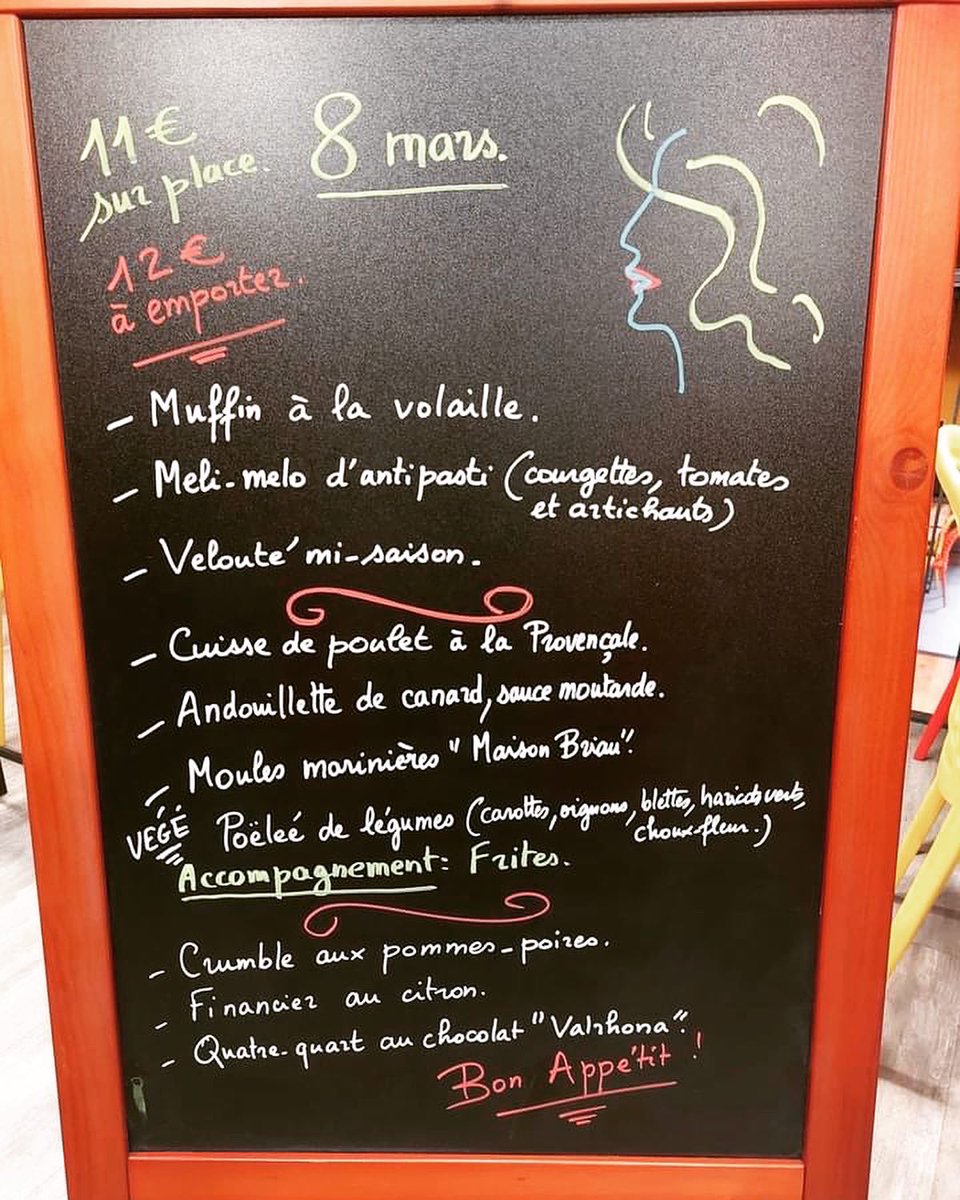 11€
sur place.
8 mars.
12€
à emporter.
- Muffin à la volaille.
- Meli-melo d'antipasti (courgettes, tomates
et artichauts)
- Velouté mi-saison.
- Cuisse de poulet à la Provençale.
- Andouillette de canard, sauce moutarde.
- Moules marinières "Maison Briau".
VÉGÉ Poëleé de légumes (carottes, oignons, blettes, haricots verts,
choux-fleur.)
Accompagnement: Frites.
- Crumble aux pommes-poires.
- Financier au citron.
- Quatre-quart au chocolat "Valrhona".
Bon Appétit !